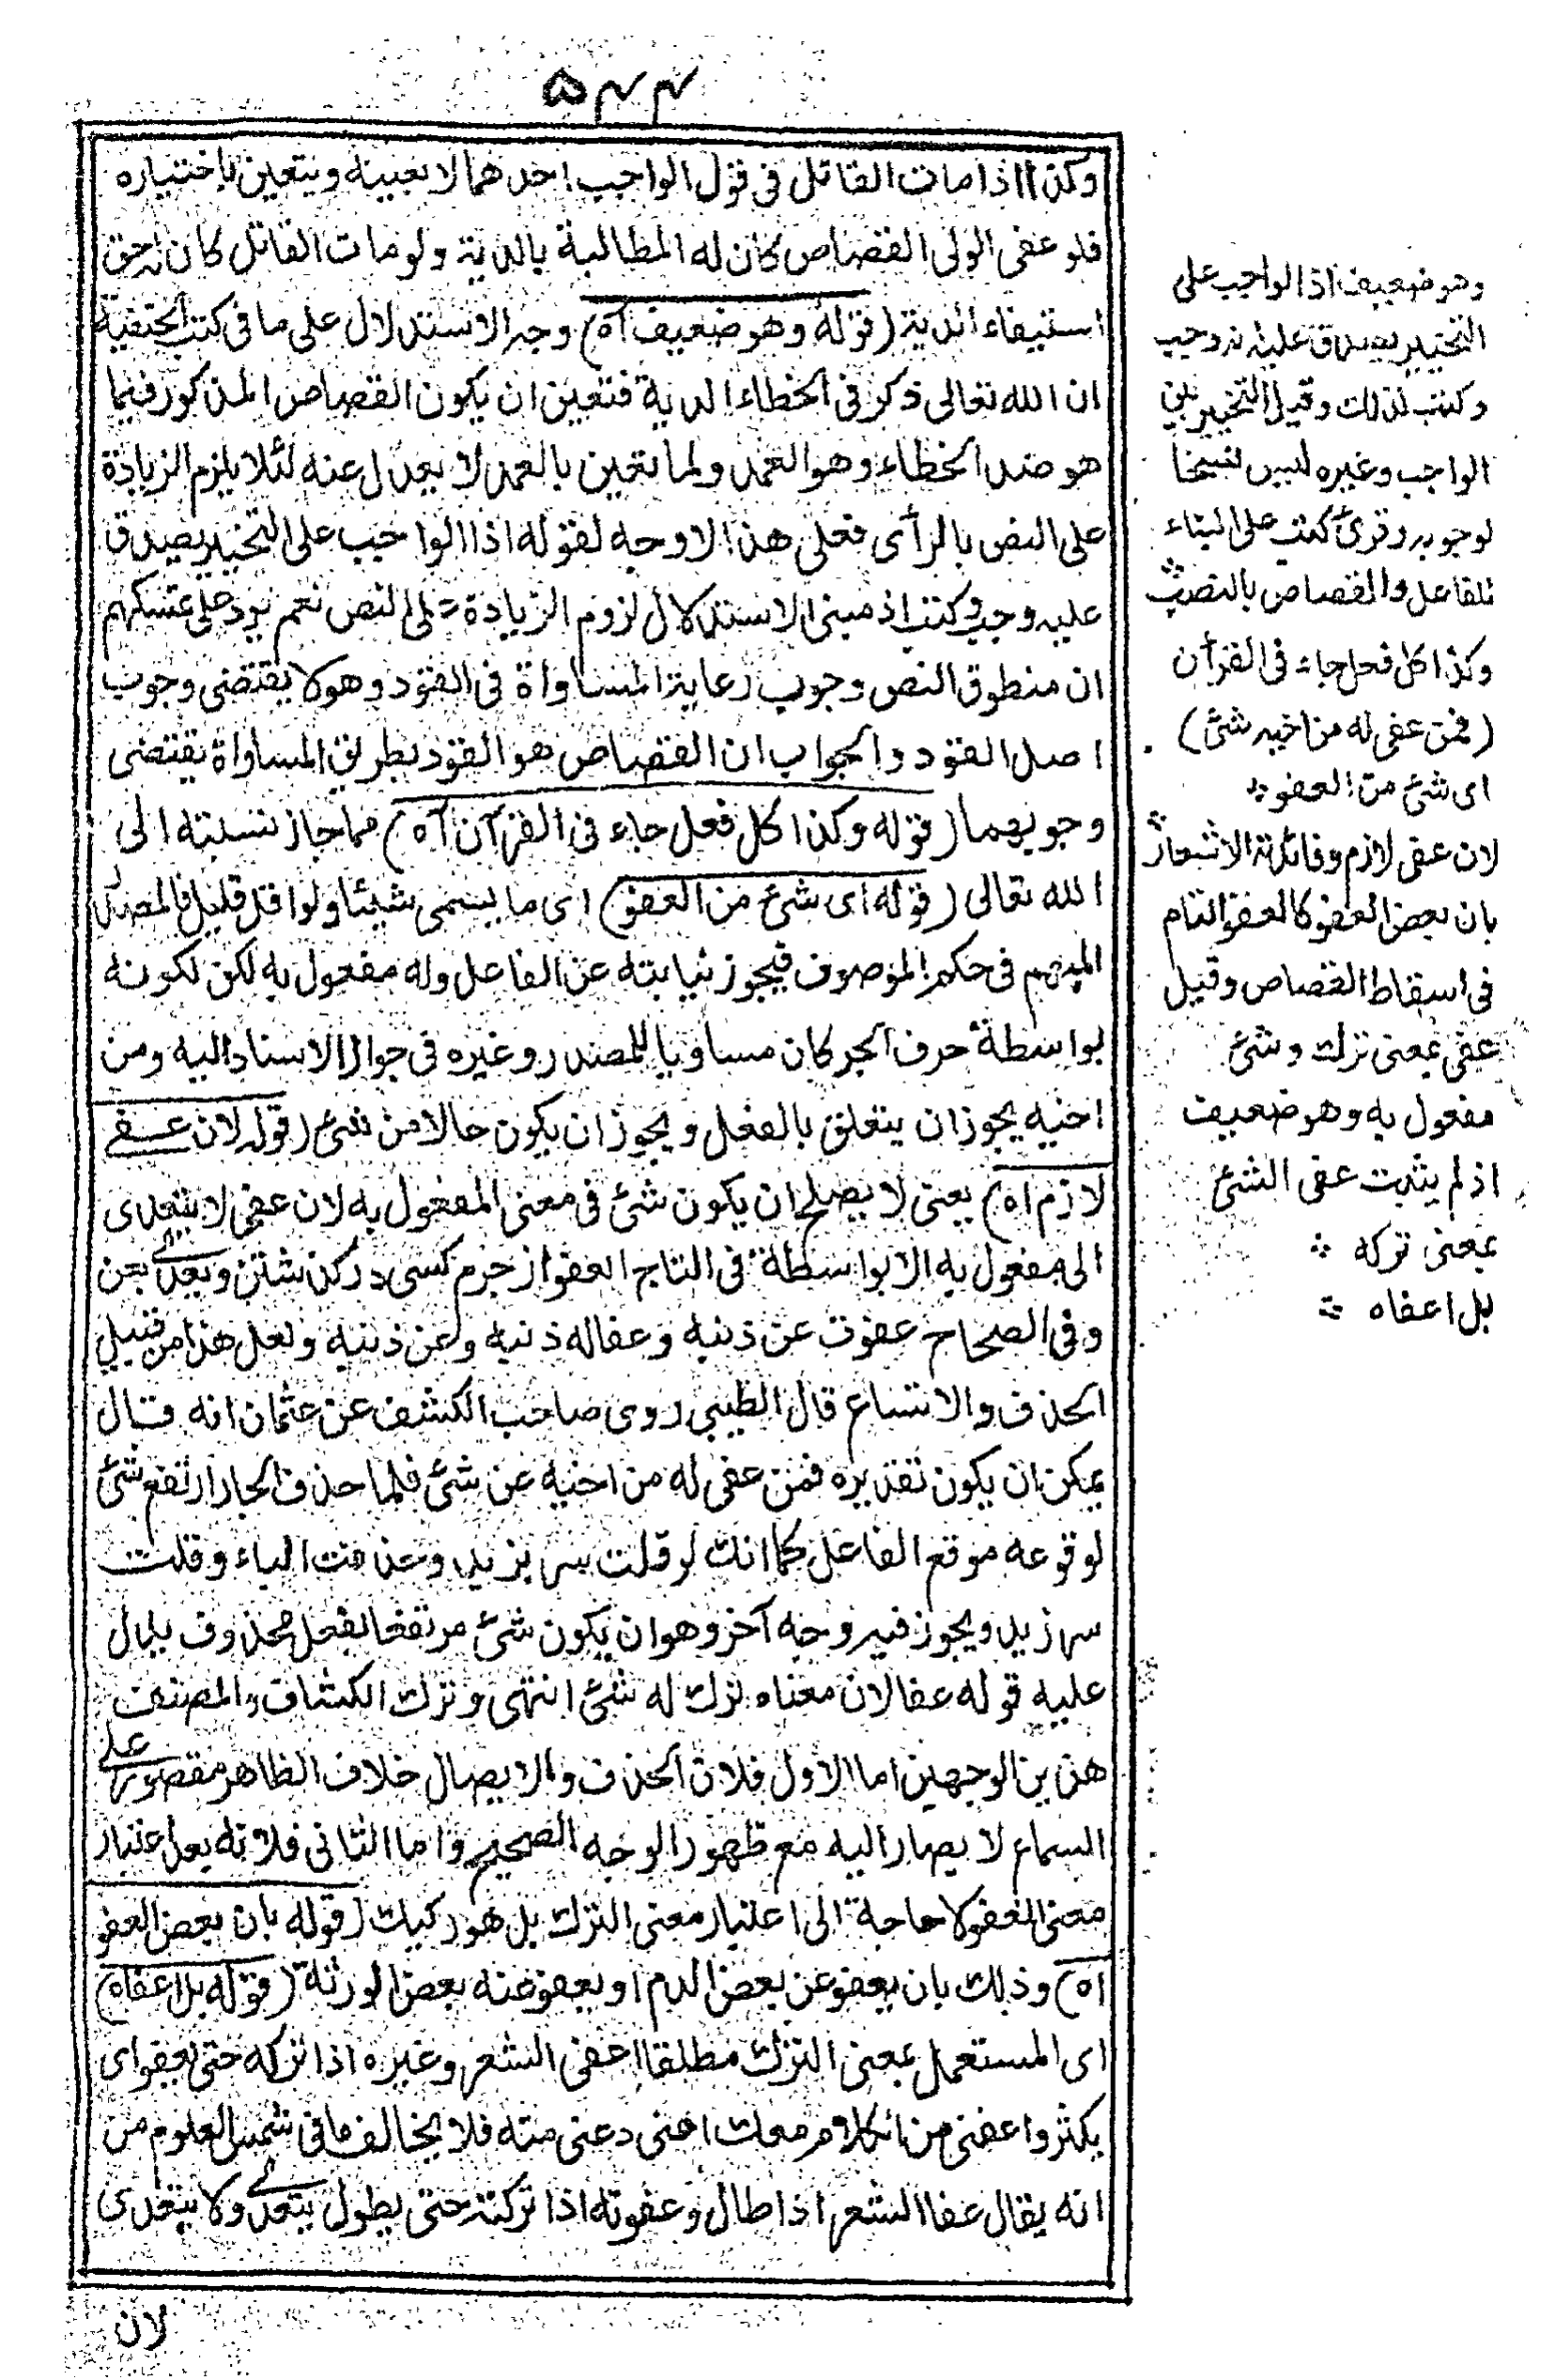 ۵۴۴
وكذا اذا مات القاتل فى قول الواجب احدهما لا بعينه ويتعين باختياره
فلو عفى الولى القصاص كان له المطالبة بالدية ولو مات القاتل كان له حق
استيفاء الدية (قوله وهو ضعيف آه) وجه الاستدلال على ما فى كتب الحنفية
ان الله تعالى ذكر فى الخطاء الدية فتعين ان يكون القصاص المذكور فيما
هو ضد الخطاء وهو العمد ولما تعين بالعمد لا يعدل عنه لئلا يلزم الزيادة
على النص بالرأى فعلى هذا لا وجه لقوله اذ الواجب على التخيير يصدق
عليه وجب وكتب اذ مبنى الاستدلال لزوم الزيادة على النص نعم يرد على تمسكهم
ان منطوق النص وجوب رعاية المساواة فى القود وهو لا يقتضى وجوب
اصل القود والجواب ان القصاص هو القود بطريق المساواة يقتضى
وجوبهما (قوله وكذا كل فعل جاء فى القرآن آه) مما جاز نسبته الى
الله تعالى (قوله اى شئ من العفو) اى ما يسمى شيئا ولو اقل قليل فالمصدر
المبهم فى حكم الموصوف فيجوز نيابته عن الفاعل وله مفعول به لكن لكونه
بواسطة حرف الجر كان مساويا للمصدر وغيره فى جواز الاسناد اليه ومن
اخيه يجوز ان يتعلق بالفعل ويجوز ان يكون حالا من شئ (قوله لان عفى
لازم اه) يعنى لا يصلح ان يكون شئ فى معنى المفعول به لان عفى لا يتعدى
الى مفعول به الا بواسطة فى التاج العفو از جرم كسى در كذشتن ويعدى بعن
وفى الصحاح عفوت عن ذنبه وعفا له ذنبه وعن ذنبه ولعل هذا من قبيل
الحذف والاتساع قال الطيبى روى صاحب الكشف عن عثمان انه قال
يمكن ان يكون تقديره فمن عفى له من اخيه عن شئ فلما حذف الجار ارتفع شئ
لوقوعه موقع الفاعل كما انك لو قلت سر بزيد وحذفت الباء وقلت
سر زيد ويجوز فيه وجه آخر وهو ان يكون شئ مرتفعا لفعل محذوف يدل
عليه قوله عفا لان معناه ترك له شئ انتهى وترك الكشاف والمصنف
هذين الوجهين اما الاول فلان الحذف والايصال خلاف الظاهر مقصور على
السماع لا يصار اليه مع ظهور الوجه الصحيح واما الثانى فلانه بعد اعتبار
معنى العفو لا حاجة الى اعتبار معنى الترك بل هو ركيك (قوله بان بعض العفو
اه) وذلك بان يعفو عن بعض الدم او يعفو عنه بعض الورثة (قوله بل اعفاه)
اى المستعمل بمعنى الترك مطلقا اعفى الشعر وغيره اذا تركه حتى يعفو اى
يكثر واعفنى من الكلام معك اعنى دعنى منه فلا يخالف ما فى شمس العلوم من
انه يقال عفا الشعر اذا طال وعفوته اذا تركته حتى يطول يتعدى ولا يتعدى
لان
وهو ضعيف اذ الواجب على
التخيير يصدق عليه انه وجب
وكتب لذلك وقيل التخيير بين
الواجب وغيره ليس نسخا
لوجوبه وقرئ كتب على البناء
للفاعل والقصاص بالنصب
وكذا كل فعل جاء فى القرآن
(فمن عفى له من اخيه شئ)
اى شئ من العفو
لان عفى لازم وفائدته الاشعار
بان بعض العفو كالعفو التام
فى اسقاط القصاص وقيل
عفى بمعنى ترك وشئ
مفعول به وهو ضعيف
اذ لم يثبت عفى الشئ
بمعنى تركه
بل اعفاه